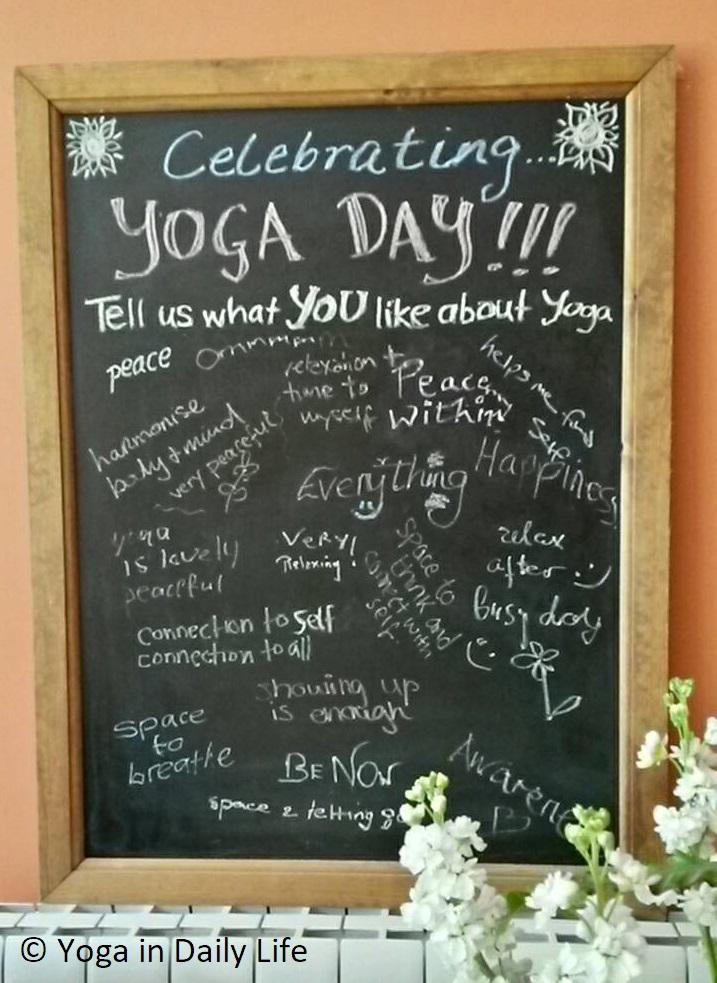 Celebrating...
YOGA DAY!!!
Tell us what YOU like about Yoga
peace
Ommmmm
relexation +
time to
myself
Peace
within
helps me find
Self
harmonise
body + mind
very peaceful
Everything
HAPPiness
yoga
is lovely
peaceful
VERY!
Relaxing!
space to
think and
connect with
self
relax
after :)
busy day
(:
connection to self
connection to all
showing up
is enough
space
to
breathe
BE NOW
Awarene
space 2 letting go
© Yoga in Daily Life